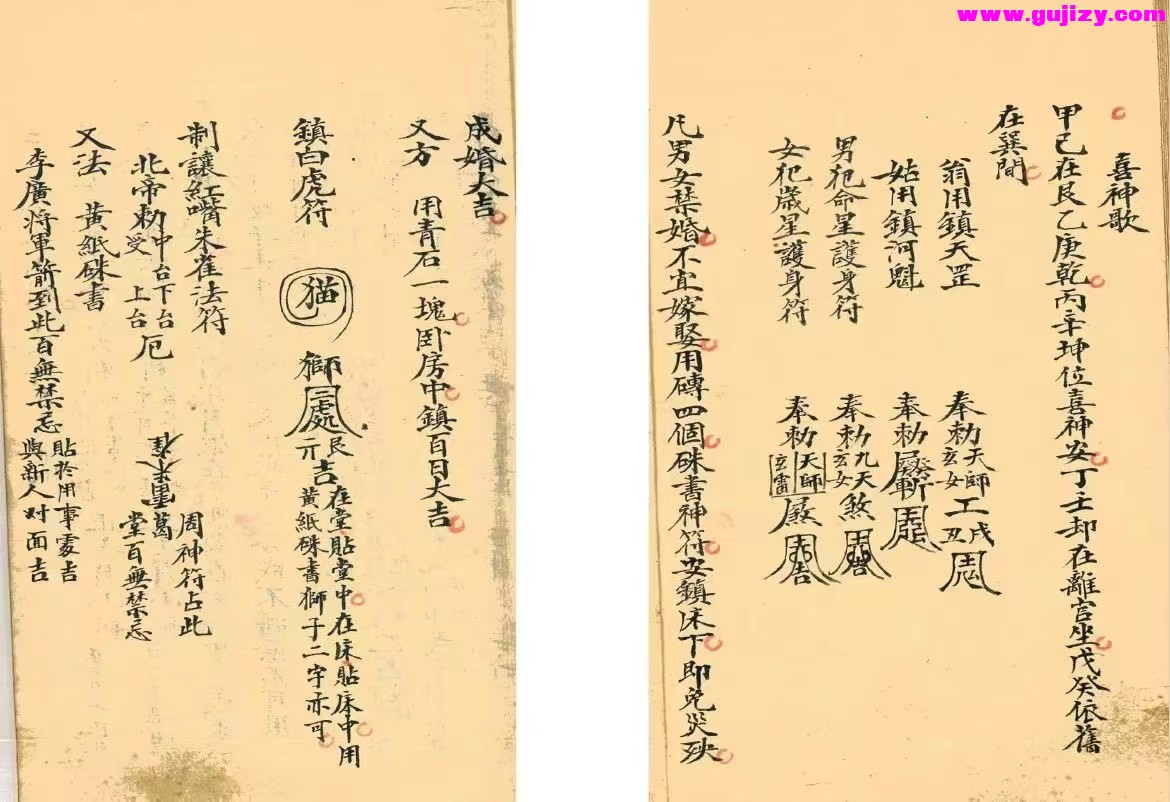 www.gujizy.com
喜神歌
甲己在艮乙庚乾丙辛坤位喜神安丁壬却在離宮坐戊癸依舊
在巽間
翁用鎮天罡 奉勅天師玄女工戌丑
姑用鎮河魁 奉勅
男犯命星護身符 奉勅九天玄女煞
女犯歲星護身符 奉勅天師玄雷
凡男女禁婚不宜嫁娶用磚四個硃書神符安鎮床下即免災殃
成婚大吉
又方 用青石一塊卧房中鎮百日大吉
鎮白虎符 猫 獅三處艮元吉在堂貼堂中在床貼床中用黃紙硃書獅子二字亦可
制讓紅嘴朱雀法符 周神符占此
北帝勅受中台下台上台厄 堂百無禁忌
又法 黃紙硃書
李廣將軍箭到此百無禁忌貼於用事處吉與新人对面吉